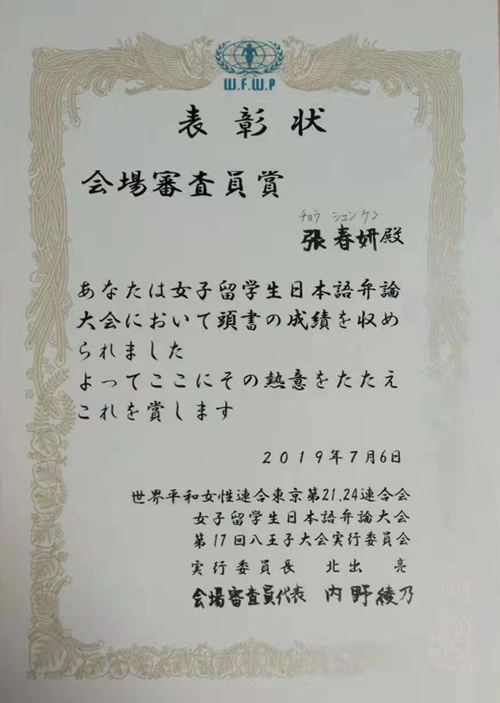 W.F.W.P
表彰状
会場審査員賞
チョウ シュンケン
張春妍殿
あなたは女子留学生日本語弁論
大会において頭書の成績を収め
られました
よってここにその熱意をたたえ
これを賞します
2019年7月6日
世界平和女性連合東京第21.24連合会
女子留学生日本語弁論大会
第17回八王子大会実行委員会
実行委員長 北出 亮
会場審査員代表 内野綾乃